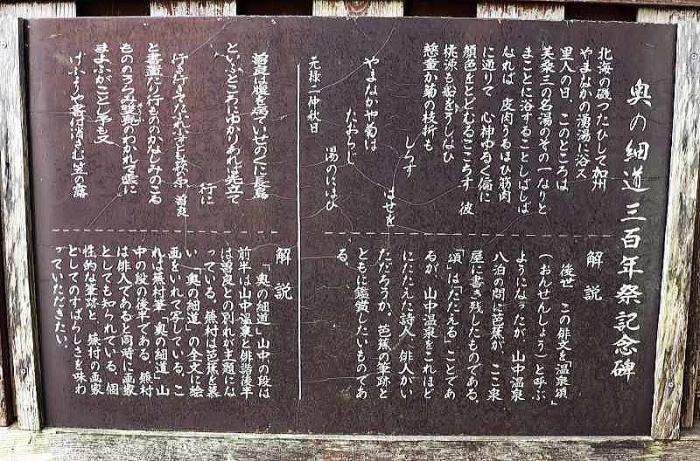 奥の細道三百年祭記念碑
北海の磯つたひして加州
やまなかの湧湯に浴ス
里人の曰、このところは
扶桑三の名湯のその一なりと
まことに浴することしばしば
なれば 皮肉うるほひ筋肉
に通りて 心神ゆるく偏に
顔色をとどむるこころす 彼
桃源も船をうしなひ
慈童が菊の枝折も
しらす
はせを
やまなかや菊は
たおらじ
湯のにほひ
元禄二仲秋日
解説
後世 この俳文を「温泉頌」
(おんせんしょう)と呼ぶ
ようになったが、山中温泉
八泊の間に芭蕉が、ここ泉
屋に書き残したものである。
「頌」は「たたえる」ことであ
るが、山中温泉をこれほど
にたたえた詩人、俳人がい
ただろうか。芭蕉の筆跡と
ともに鑑賞したいものであ
る。
曽良は腹を病ていせのくに長嶋
といふところにゆかりあれは先立て
行に
行き行きてたふれ伏とも萩の原 曽良
と書置たり行ものゝかなしみのこる
ものゝうらみ隻鳧のわかれて雲に
まよふがごとし予も又
けふよりや書付消さむ笠の露
解説
「奥の細道」山中の段は
前半は山中温泉と俳諧後半
は曽良との別れが主題にな
っている。蕪村は芭蕉を慕
い「奥の細道」の全文に絵
画をいれて写している。こ
れは蕪村筆「奥の細道」山
中の段の後半である。蕪村
は俳人であると同時に画家
としても知られている。個
性的な筆跡と、蕪村の画家
としてのすばらしさを味わ
っていただきたい。